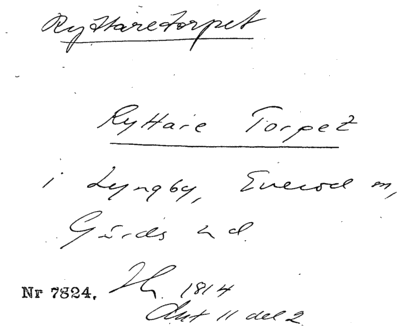 Ryttaretorpet
Ryttare Torpet
i Lyngby, Everöd sn,
Gärds hd.
Nr 7824. 1814
Akt 11 del 2